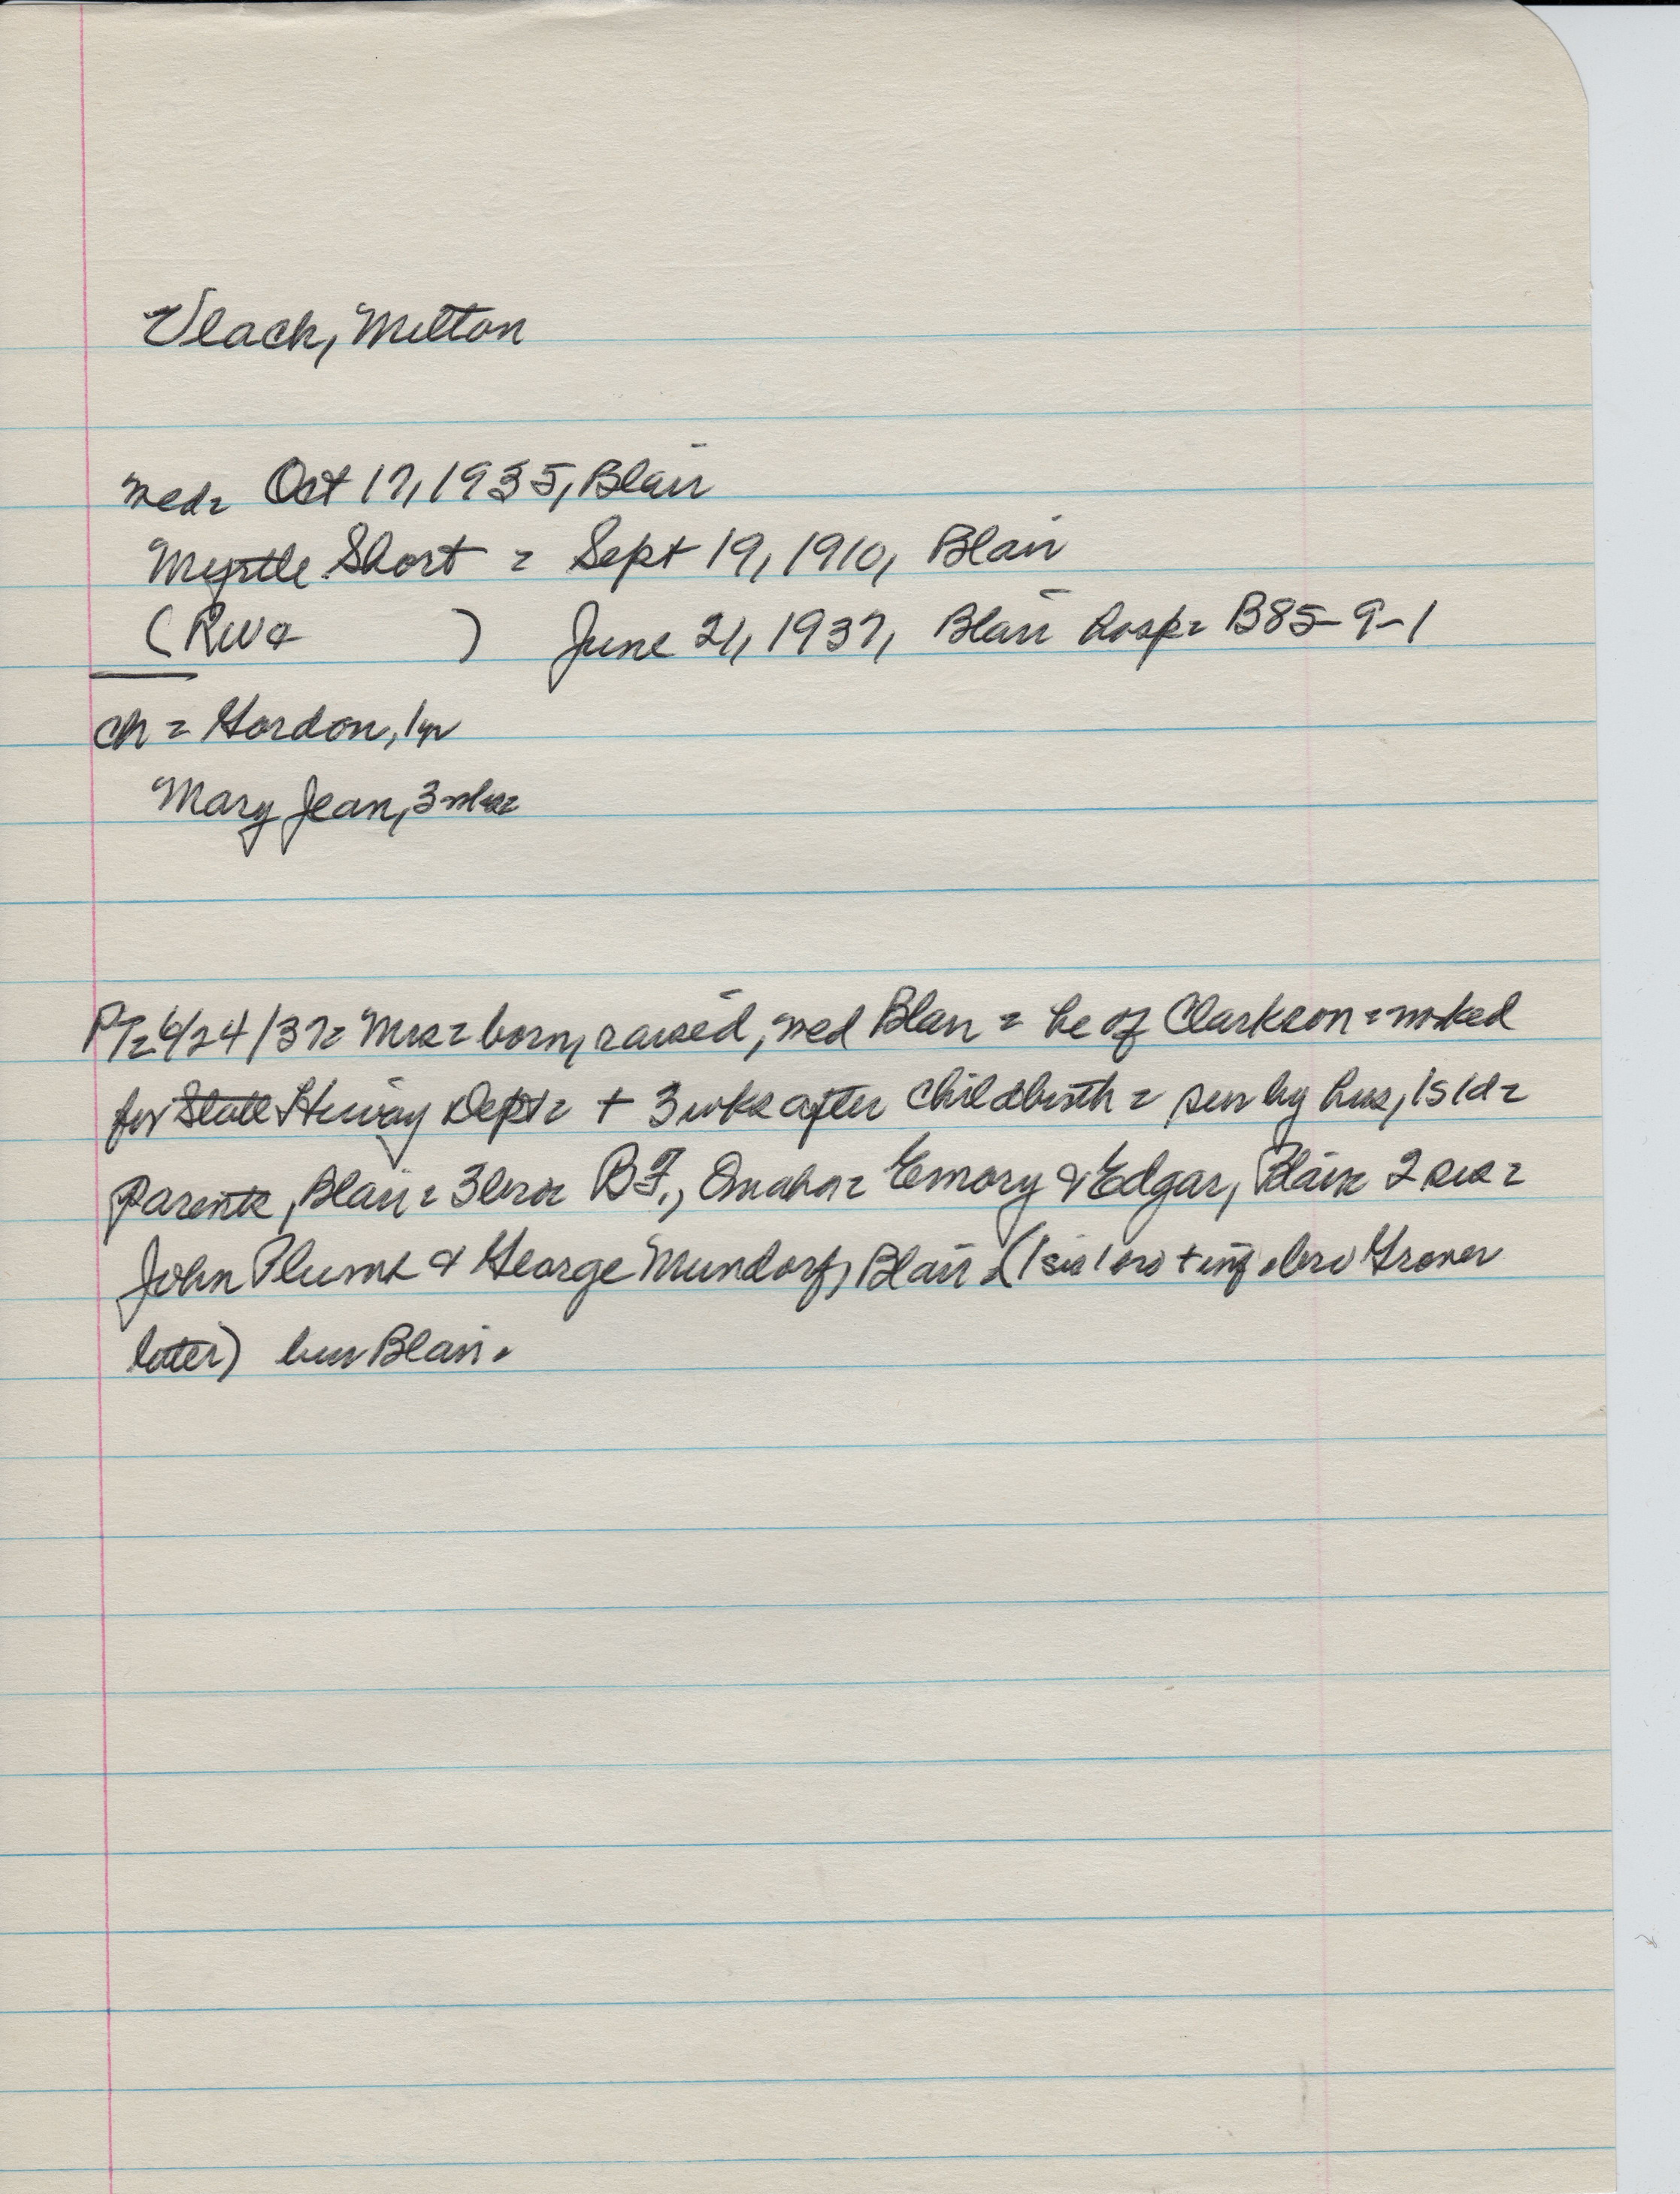 Vlach, Milton
wed= Oct 17, 1935, Blair
Myrtle Short = Sept 19, 1910, Blair
( ) June 21, 1937, Blair hosp= B85-9-1
ch = Gordon, 1yr
Mary Jean, 3wks=
PT= 6/24/37= Mrs= born, raised, wed Blair = he of Clarkson = wked
for State Hiway Dept= + 3 wks after childbirth = sur by hus, 1s 1d=
Parents, Blair = 3bros B.F., Omaha= Emory & Edgar, Blair= 2 sis=
John Plums & George Mundorf, Blair (1 sis 1 bro + inf, bro Grover
later) bur Blair.